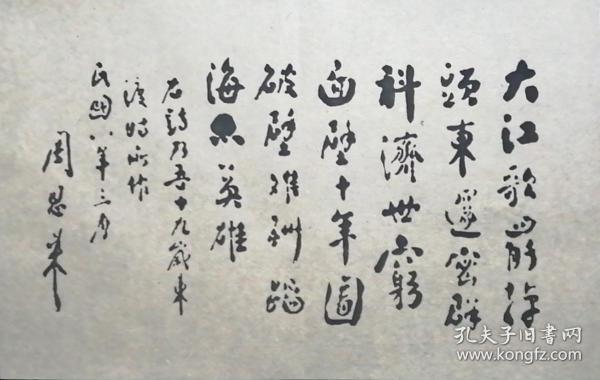 大江歌罷掉
頭東邃密群
科濟世窮
面壁十年圖
破壁難酬蹈
海亦英雄
右詩乃吾十九歲東
渡時所作
民國八年三月
周恩來
孔夫子旧书网
www.kongfz.com